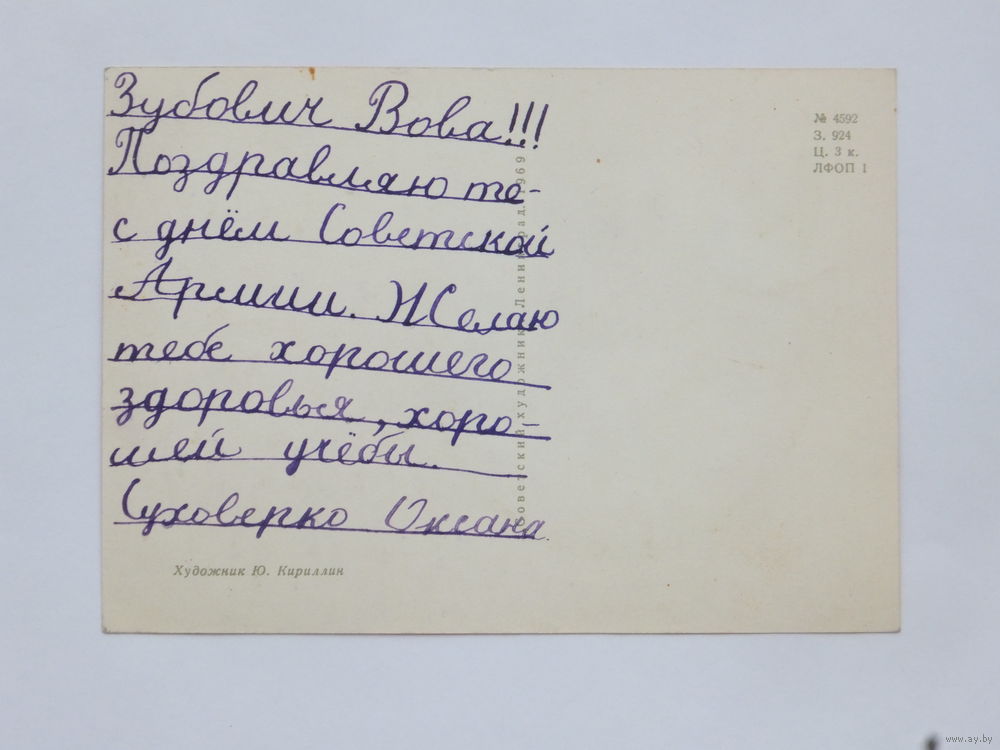 Зубович Вова!!!
Поздравляю те-
с днём Советской
Армии. Желаю
тебе хорошего
здоровья, хоро-
шей учёбы.
Суховерко Оксана.
Художник Ю. Кириллин
Советский художник. Ленинград. 1969
№ 4592
З. 924
Ц. 3 к.
ЛФОП 1
www.ay.by